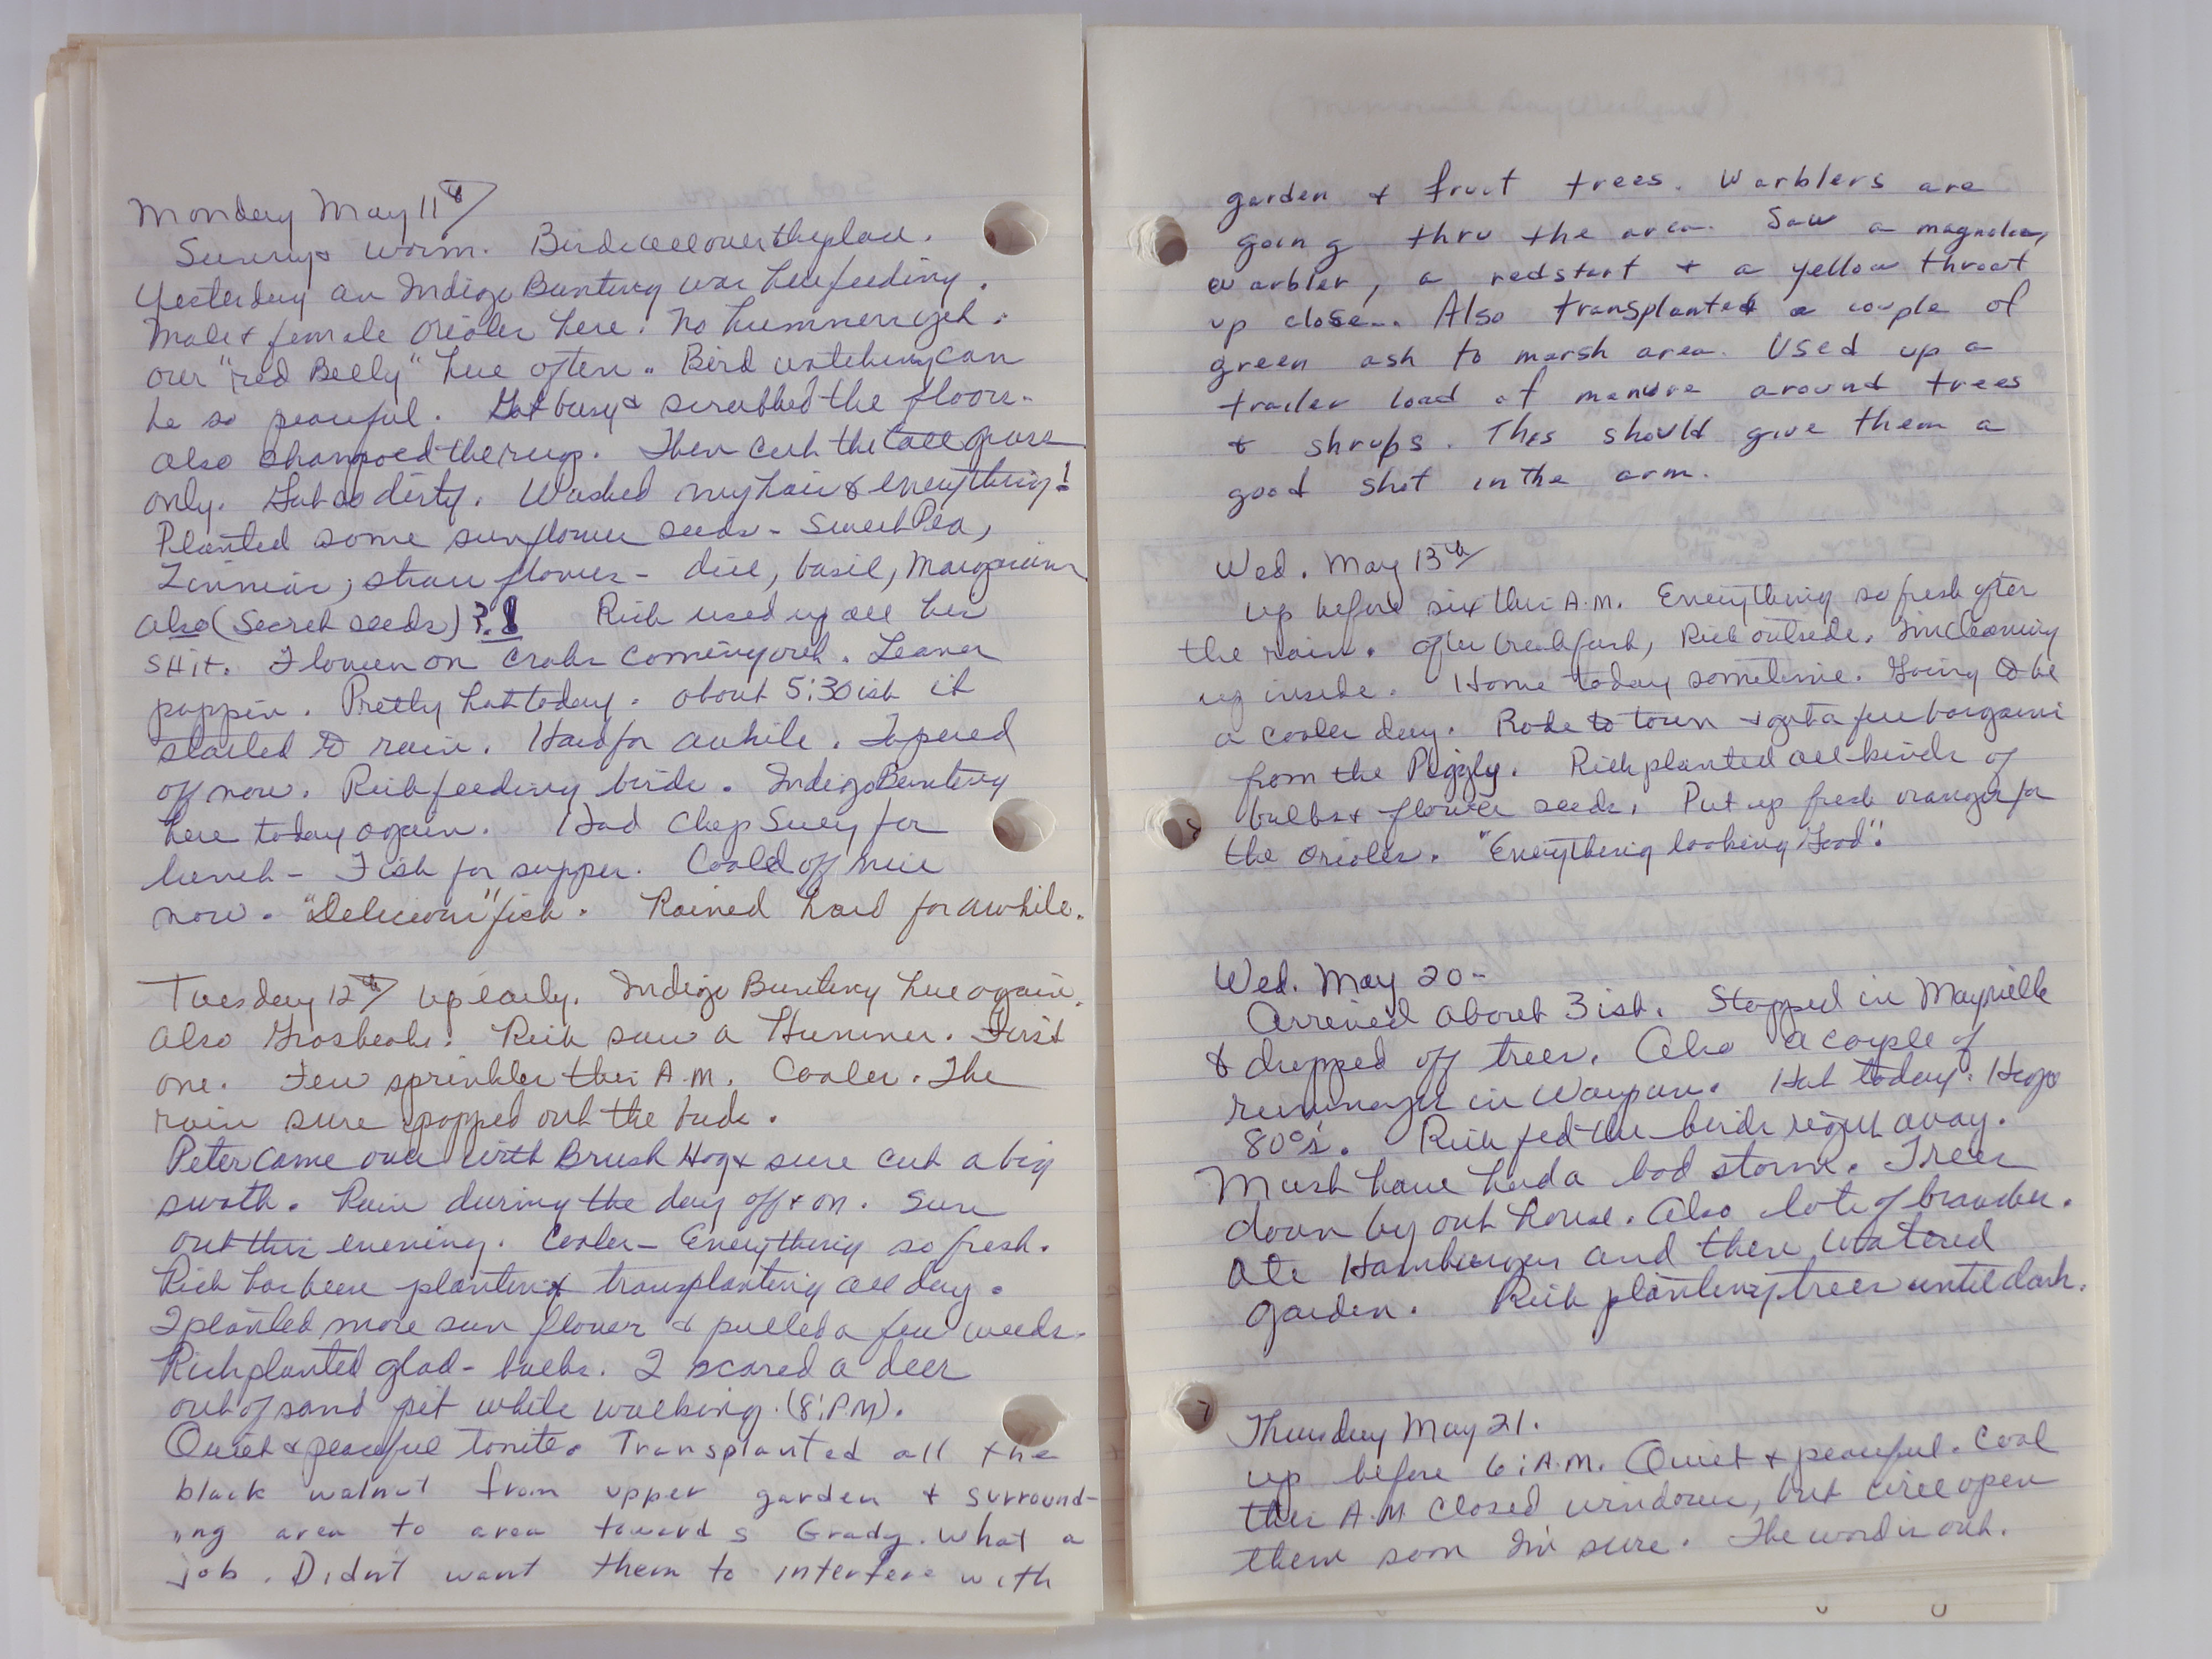 Monday May 11th
Sunny & warm. Birds all over the place.
Yesterday an Indigo Bunting was here feeding.
Male & female Orioles here. No hummers yet.
our "red Belly" here often. Bird watching can
be so peaceful. Got busy & scrubbed the floors.
also shampooed the rugs. Then cut the tall grass
only. Got so dirty. Washed my hair & everything!
Planted some sunflower seeds - Sweet Pea,
Zinnias, straw flowers - dill, basil, Margoram
also (Secret seeds)?!
Rich used up all his
SHit. Flowers on Crabs coming out. Leaves
poppin. Pretty hot today. about 5:30ish it
started to rain. Hard for awhile. Tapered
off now. Rich feeding birds. Indigo Bunting
here today again. Had Chop Suey for
lunch - Fish for supper. Cooled off nice
now. "Delicious" fish. Rained hard for awhile.
Tuesday 12th up early. Indigo Bunting here again.
Also Grosbeaks. Rich saw a Hummer. First
one. Few sprinkles this A.M. Cooler. The
rain sure popped out the buds.
Peter came over with Brush Hog & sure cut a big
swath. Rain during the day off & on. Sun
out this evening. Cooler - Everything so fresh.
Rich has been planting & transplanting all day.
I planted more sun flower & pulled a few weeds.
Rich planted glad - bulbs. I scared a deer
out of sand pit while walking. (8:PM).
Quiet & peaceful tonite. Transplanted all the
black walnut from upper garden & surround-
ing area to area towards Grady. What a
job. Didn't want them to interfere with
garden & fruit trees. Warblers are
going thru the area. Saw a magnolia
warbler, a redstart & a yellow throat
up close... Also transplanted a couple of
green ash to marsh area. Used up a
trailer load of manure around trees
& shrubs. This should give them a
good shot in the arm.
Wed. May 13th
up before six this A.M. Everything so fresh after
the rain. After breakfast, Rich outside. I'm cleaning
up inside. Home today sometime. Going to be
a cooler day. Rode to town & got a few bargains
from the Piggly. Rich planted all kinds of
bulbs & flower seeds. Put up fresh oranges for
the Orioles. "Everything looking Good".
Wed. May 20-
Arrived about 3ish. Stopped in Mayville
& dropped off trees. Also a couple of
rummages in Waupun. Hot today.
80°s. Rich fed the birds right away.
Must have had a bad storm. Trees
down by out house. Also lots of branches.
Ate Hamburgers and then watered
garden. Rich planting trees until dark.
Thursday May 21.
up before 6:A.M. Quiet & peaceful. Cool
this A.M. Closed windows, but will open
them soon I'm sure. The word is out.